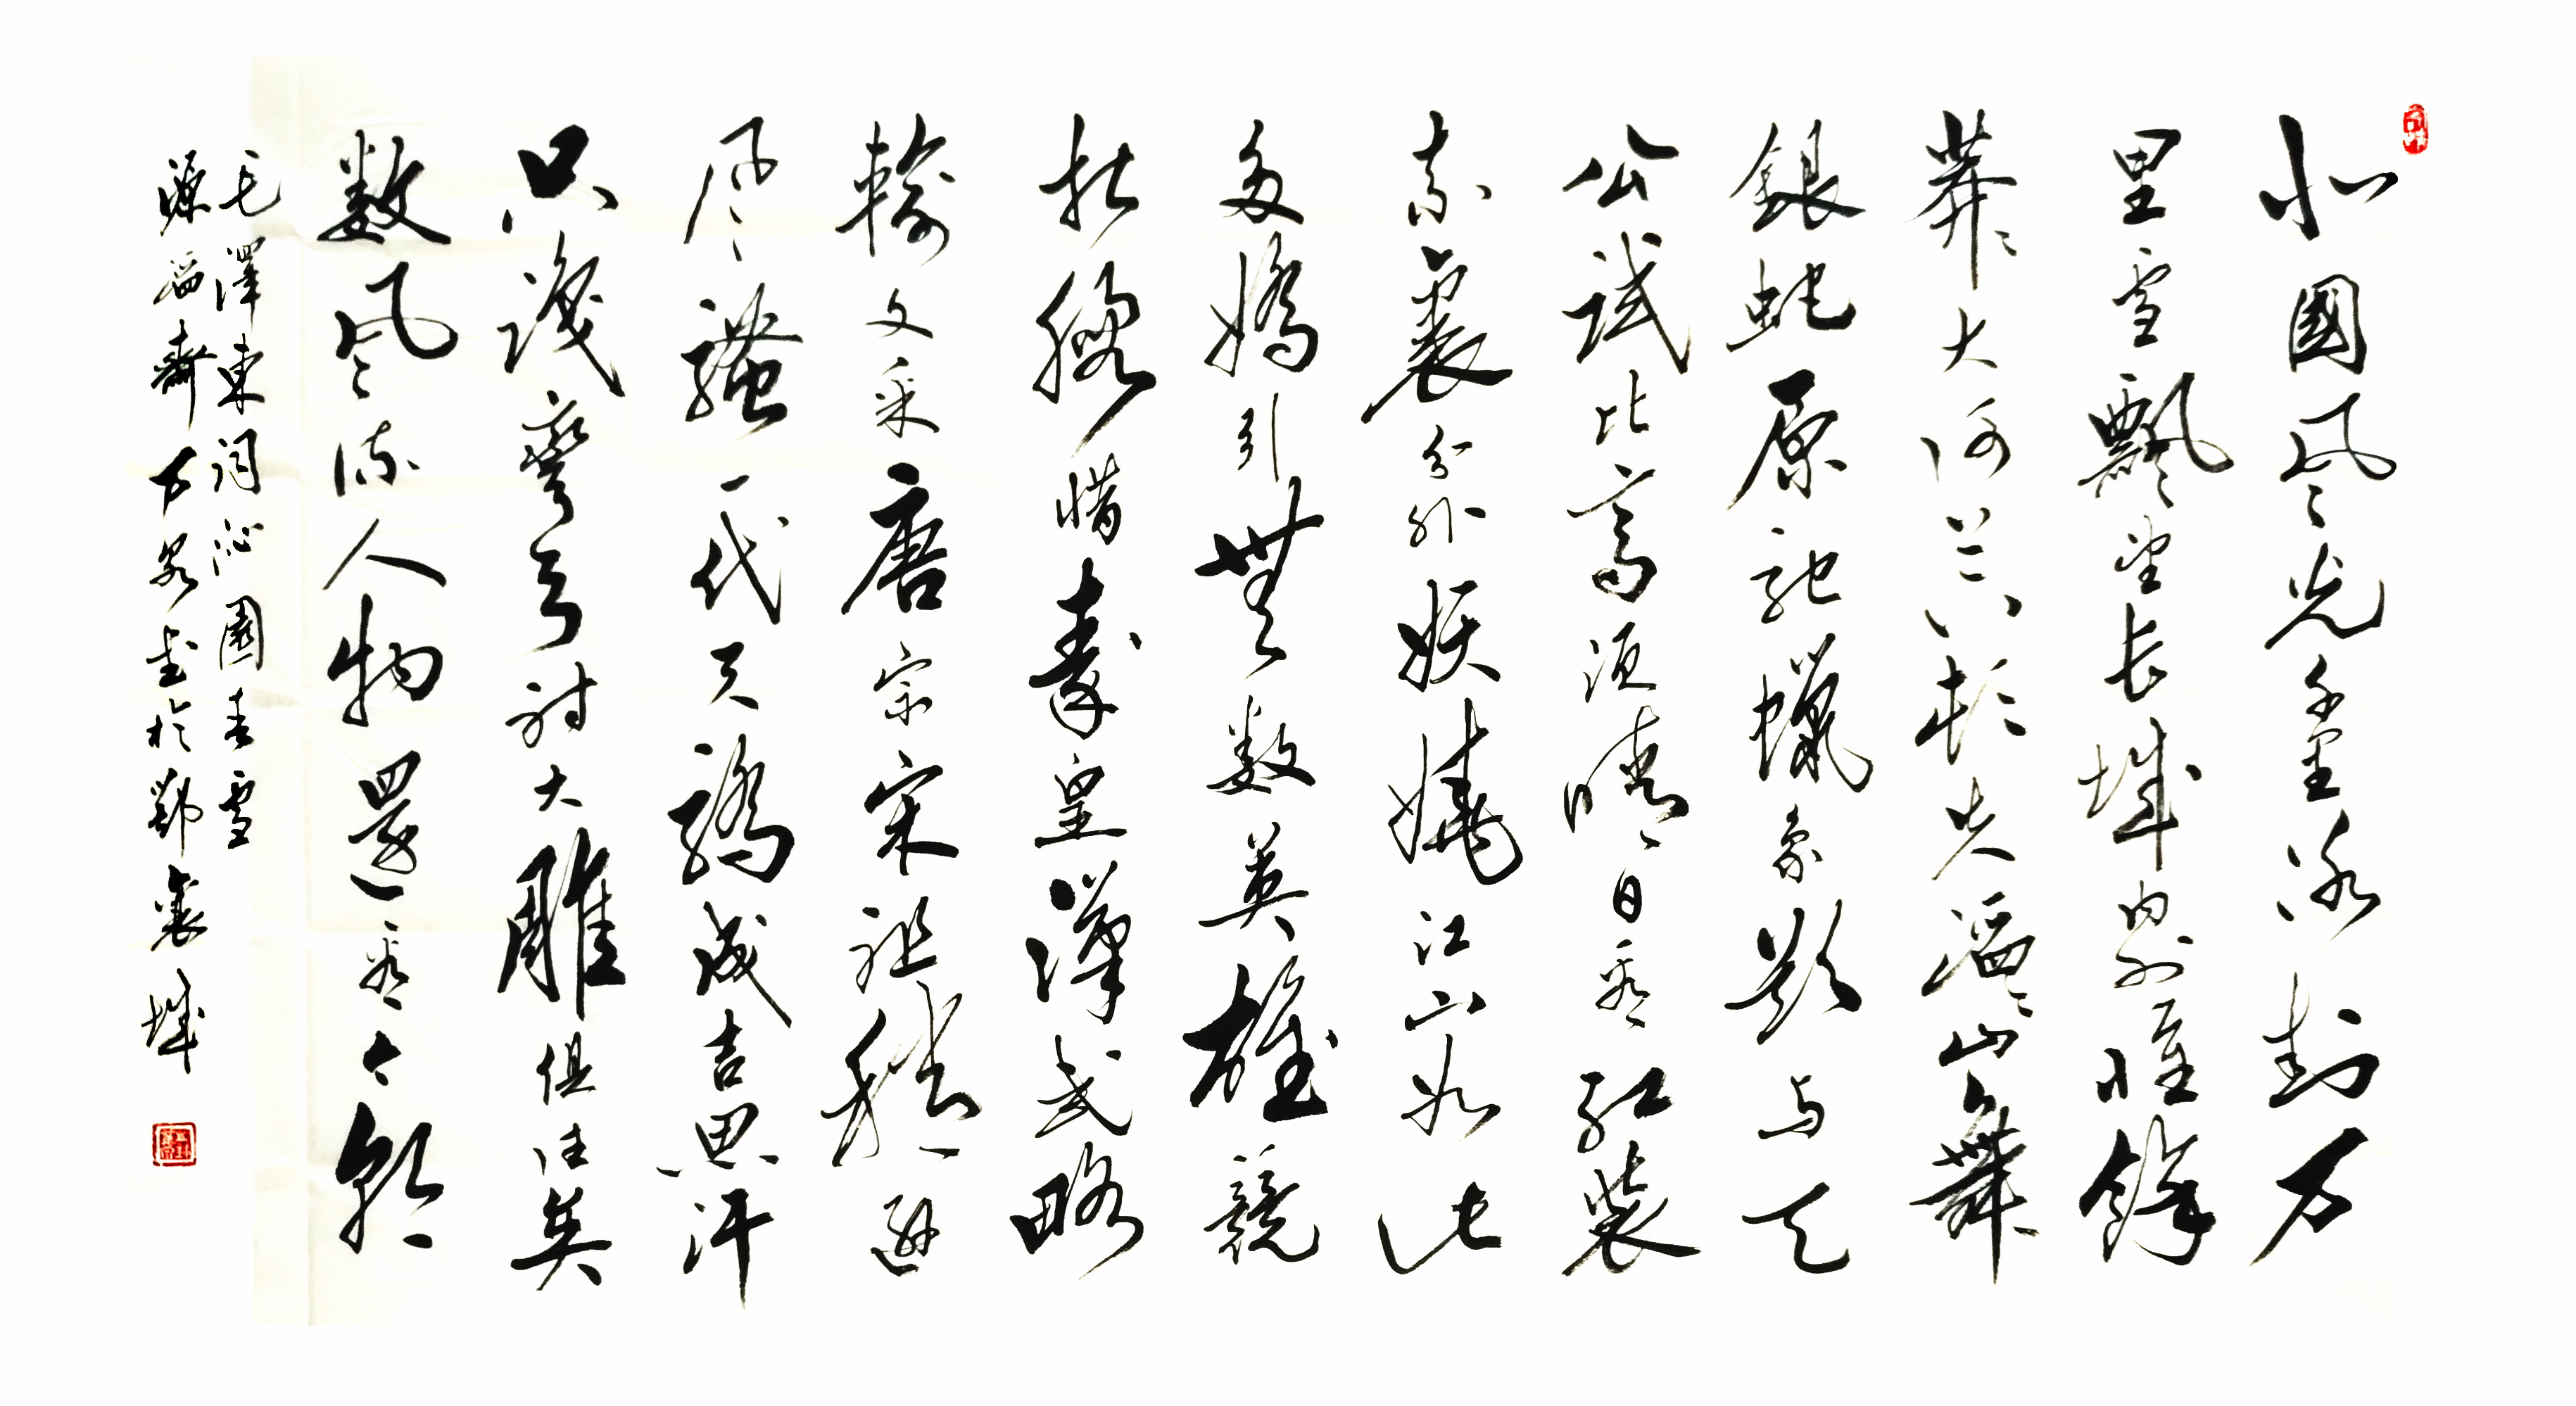 北國风光千里冰封万
里雪飘望长城内外惟馀
莽々大河上下頓失滔々山舞
銀蛇原驰蠟象欲与天
公試比高须晴日看红装
素裹分外妖娆江山如此
多娇引無数英雄競
折腰惜秦皇漢武略
輸文采唐宗宋祖稍逊
风骚一代天骄成吉思汗
只識彎弓射大雕俱往矣
数风流人物還看今朝
毛澤東词沁園春雪
源斋下泉书於鄂襄城